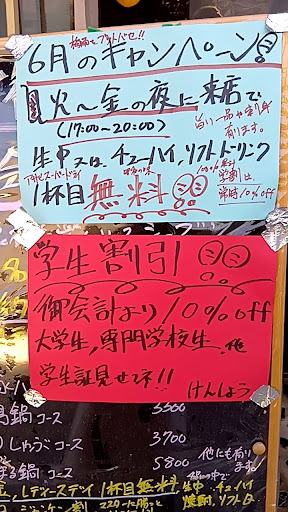 梅雨をブットバセ!!
6月のキャンペーン!!
火〜金の夜に来店で
(17:00〜20:00)
旨い一品や定食有ります。
生中又は、チューハイ,ソフトドリンク
アサヒスーパードライ
1杯目無料
学割は、常時10%off
学生割引
御会計より10%off
大学生,専門学校生.他
学生証見せてネ!!
けんしょう
鍋コース
しゃぶコース 3700
鍋コース 5800
他にも有ります。
レディースデイ 1杯目無料
生中,チューハイ
焼酎,ソフトD.